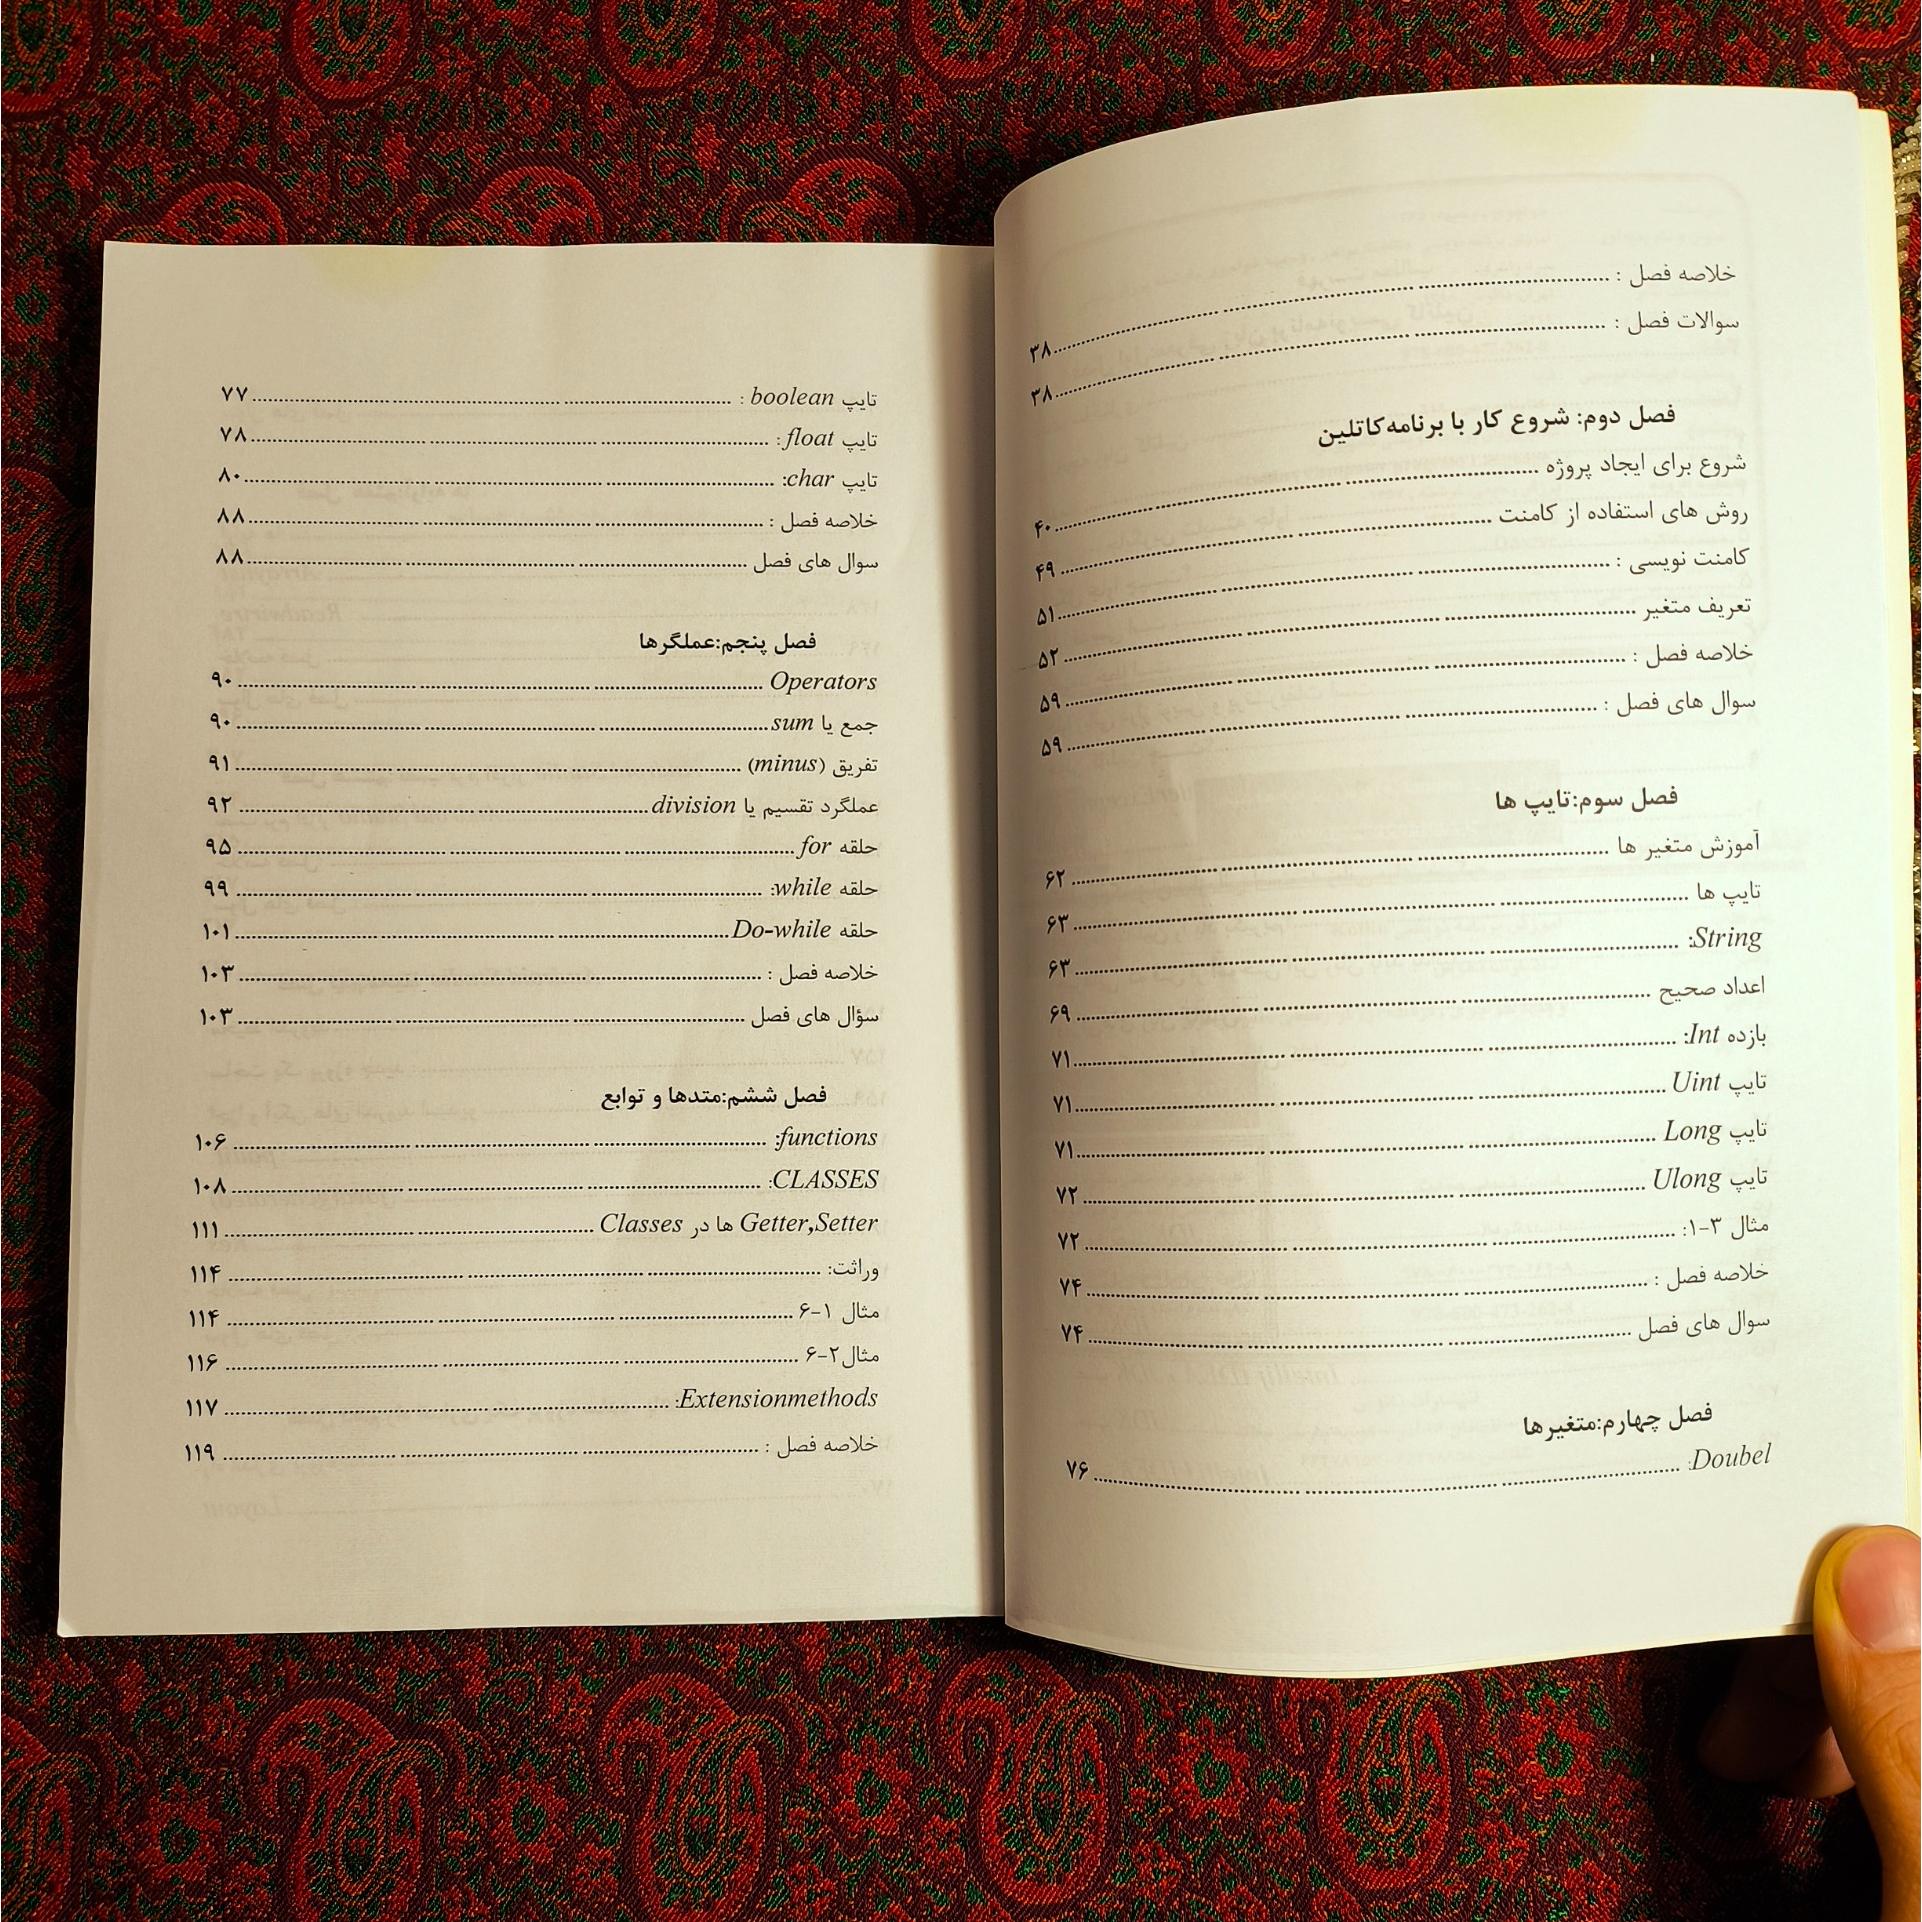 خلاصه فصل : ........ ۳۸
سوالات فصل : ........ ۳۸
فصل دوم: شروع کار با برنامه‌کاتلین
شروع برای ایجاد پروژه ........ ۴۰
روش های استفاده از کامنت ........ ۴۹
کامنت نویسی : ........ ۵۱
تعریف متغیر ........ ۵۲
خلاصه فصل : ........ ۵۹
سوال های فصل : ........ ۵۹
فصل سوم:تایپ ها
آموزش متغیر ها ........ ۶۲
تایپ ها ........ ۶۳
String: ........ ۶۳
اعداد صحیح ........ ۶۹
بازده Int: ........ ۷۱
تایپ Uint ........ ۷۱
تایپ Long ........ ۷۱
تایپ Ulong ........ ۷۲
مثال ۳-۱: ........ ۷۲
خلاصه فصل : ........ ۷۴
سوال های فصل ........ ۷۴
فصل چهارم:متغیرها
Doubel: ........ ۷۶
تایپ boolean : ........ ۷۷
تایپ float : ........ ۷۸
تایپ char: ........ ۸۰
خلاصه فصل : ........ ۸۸
سوال های فصل ........ ۸۸
فصل پنجم:عملگرها
Operators ........ ۹۰
جمع یا sum ........ ۹۰
تفریق (minus) ........ ۹۱
عملگرد تقسیم یا division ........ ۹۲
حلقه for ........ ۹۵
حلقه while: ........ ۹۹
حلقه Do-while ........ ۱۰۱
خلاصه فصل : ........ ۱۰۳
سؤال های فصل ........ ۱۰۳
فصل ششم:متدها و توابع
functions: ........ ۱۰۶
CLASSES: ........ ۱۰۸
Getter,Setter ها در Classes ........ ۱۱۱
وراثت: ........ ۱۱۴
مثال ۱-۶ ........ ۱۱۴
مثال۲-۶ ........ ۱۱۶
Extensionmethods: ........ ۱۱۷
خلاصه فصل : ........ ۱۱۹